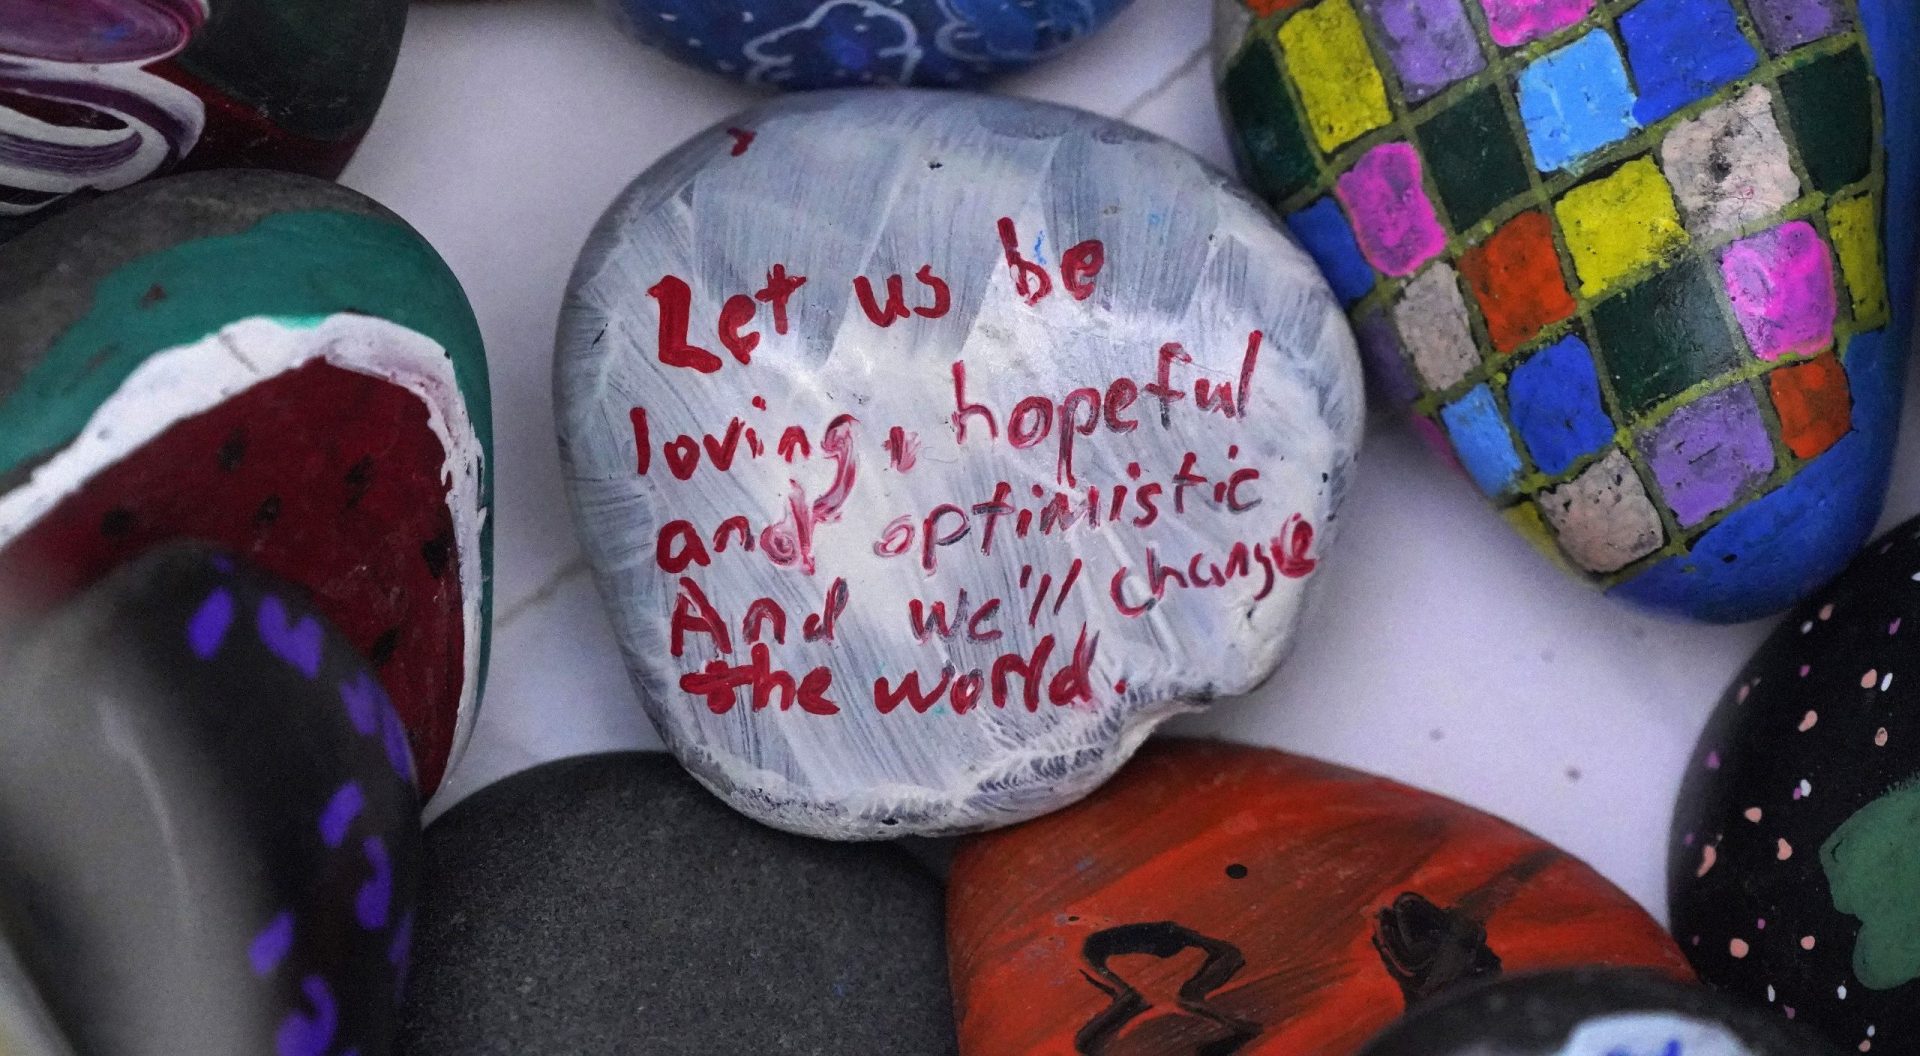 Let us be
loving, hopeful
and optimistic
And we'll change
the world.